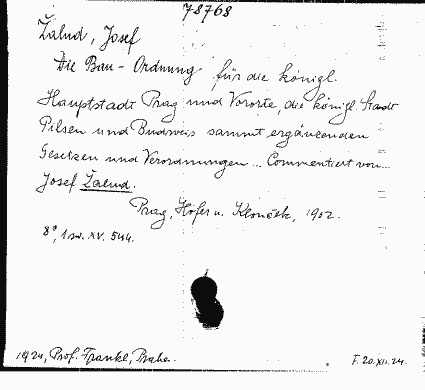 78768
Žalud, Josef
Die Bau-Ordnung für die königl.
Hauptstadt Prag und Vororte, die königl. Stadt
Pilsen und Budweis sammt ergänzenden
Gesetzen und Verordnungen... Commentiert von...
Josef Žalud.
Prag, Höfer u. Klouček, 1902.
8°, 1 sv. XV. 544.
1924, Prof. Frankl, Praha.
F. 20.XII.24.